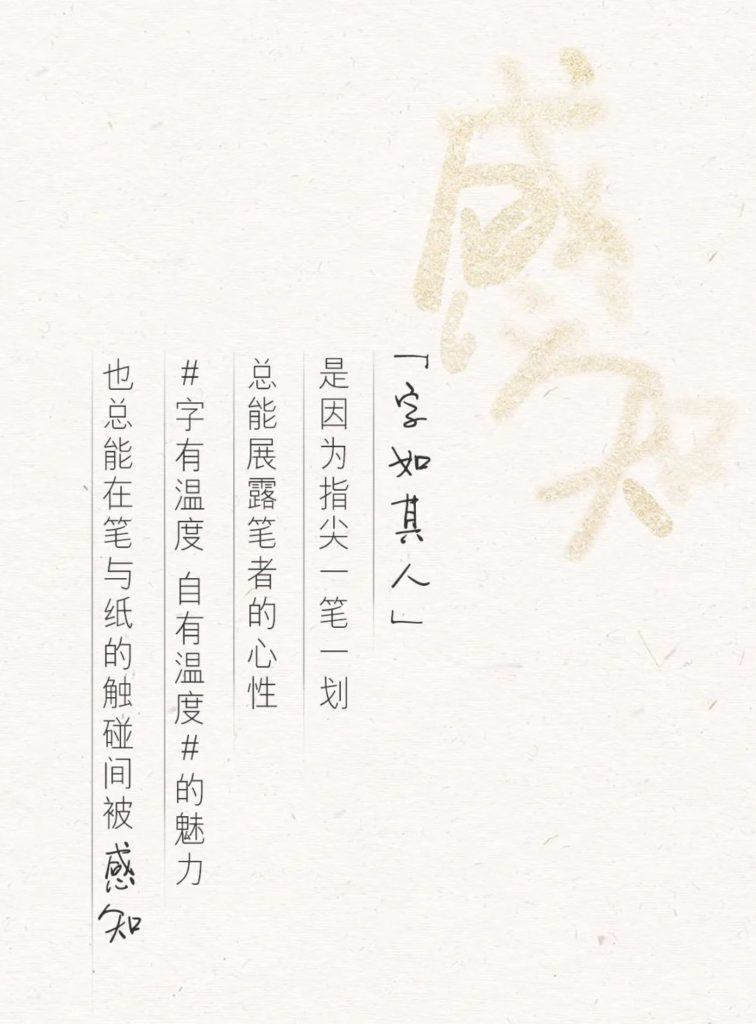 感知
「字如其人」
是因为指尖一笔一划
总能展露笔者的心性
#字有温度 自有温度#的魅力
也总能在笔与纸的触碰间被感知